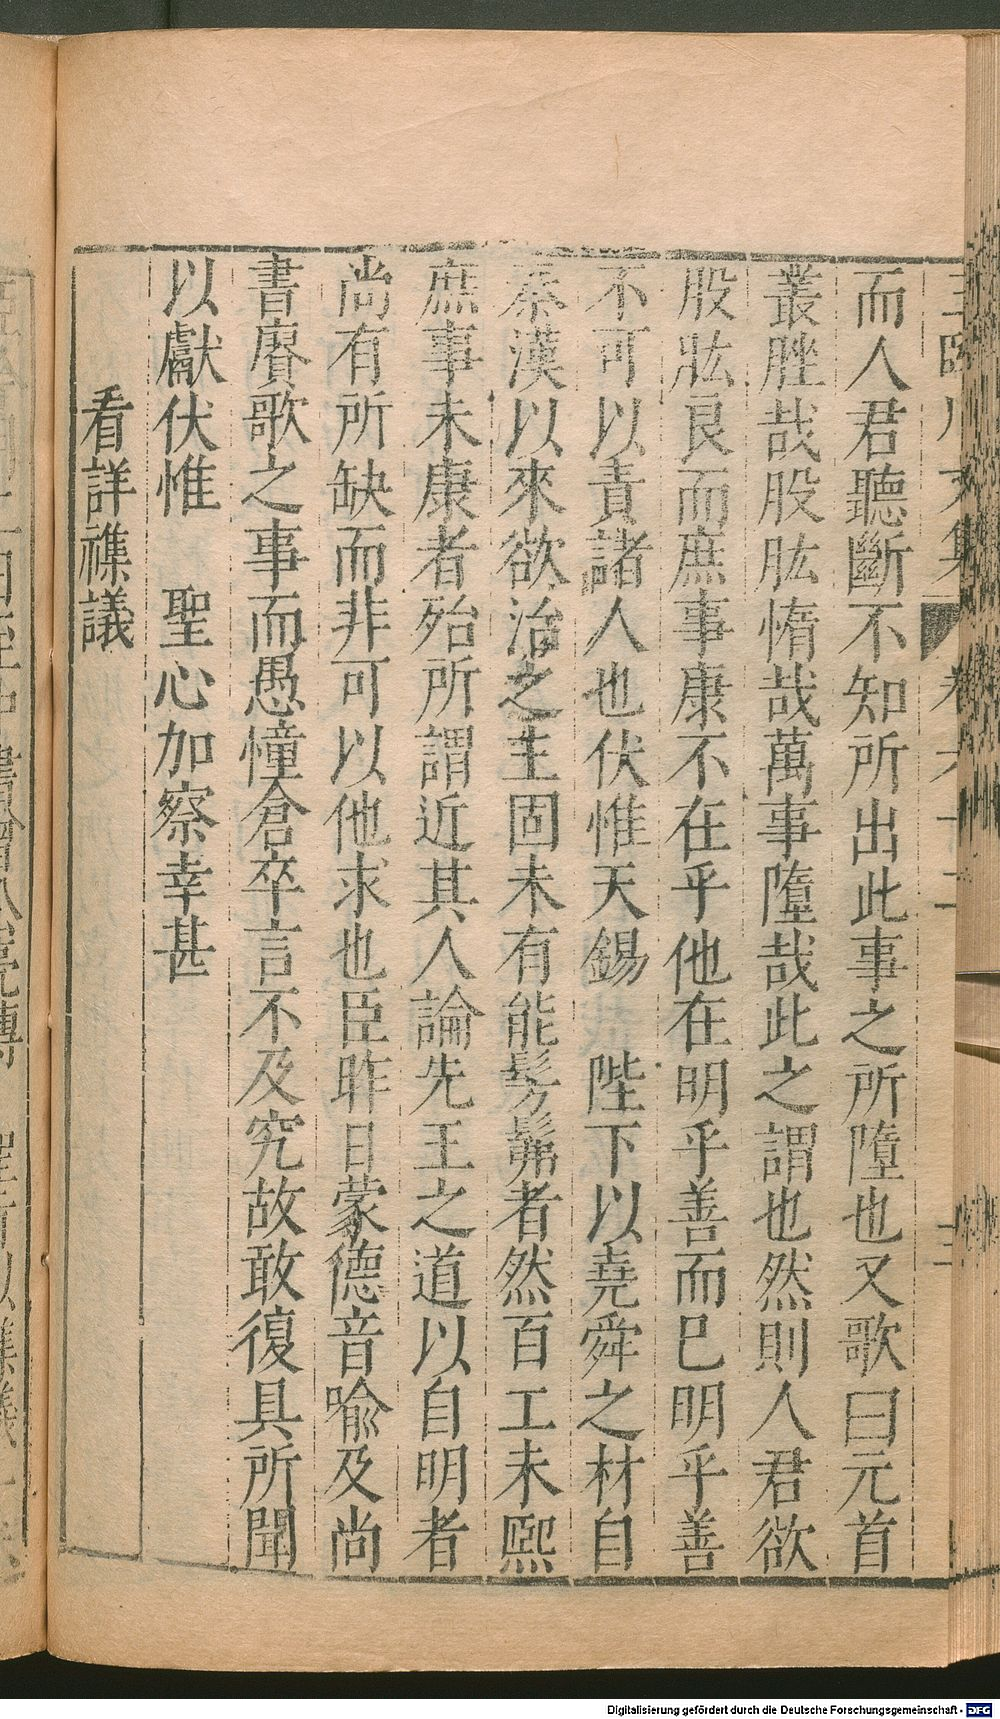 而人君聽斷不知所出此事之所墮也又歌曰元首
叢脞哉股肱惰哉萬事墮哉此之謂也然則人君欲
股肱良而庶事康不在乎他在明乎善而巳明乎善
不可以責諸人也伏惟天錫　陛下以堯舜之材自
秦漢以來欲治之主固未有能髣髴者然百工未熙
庶事未康者殆所謂近其人論先王之道以自明者
尚有所缺而非可以他求也臣昨日蒙德音喻及尚
書賡歌之事而愚憧倉卒言不及究故敢復具所聞
以獻伏惟　聖心加察幸甚
看詳襍議
Digitalisierung gefördert durch die Deutsche Forschungsgemeinschaft - DFG